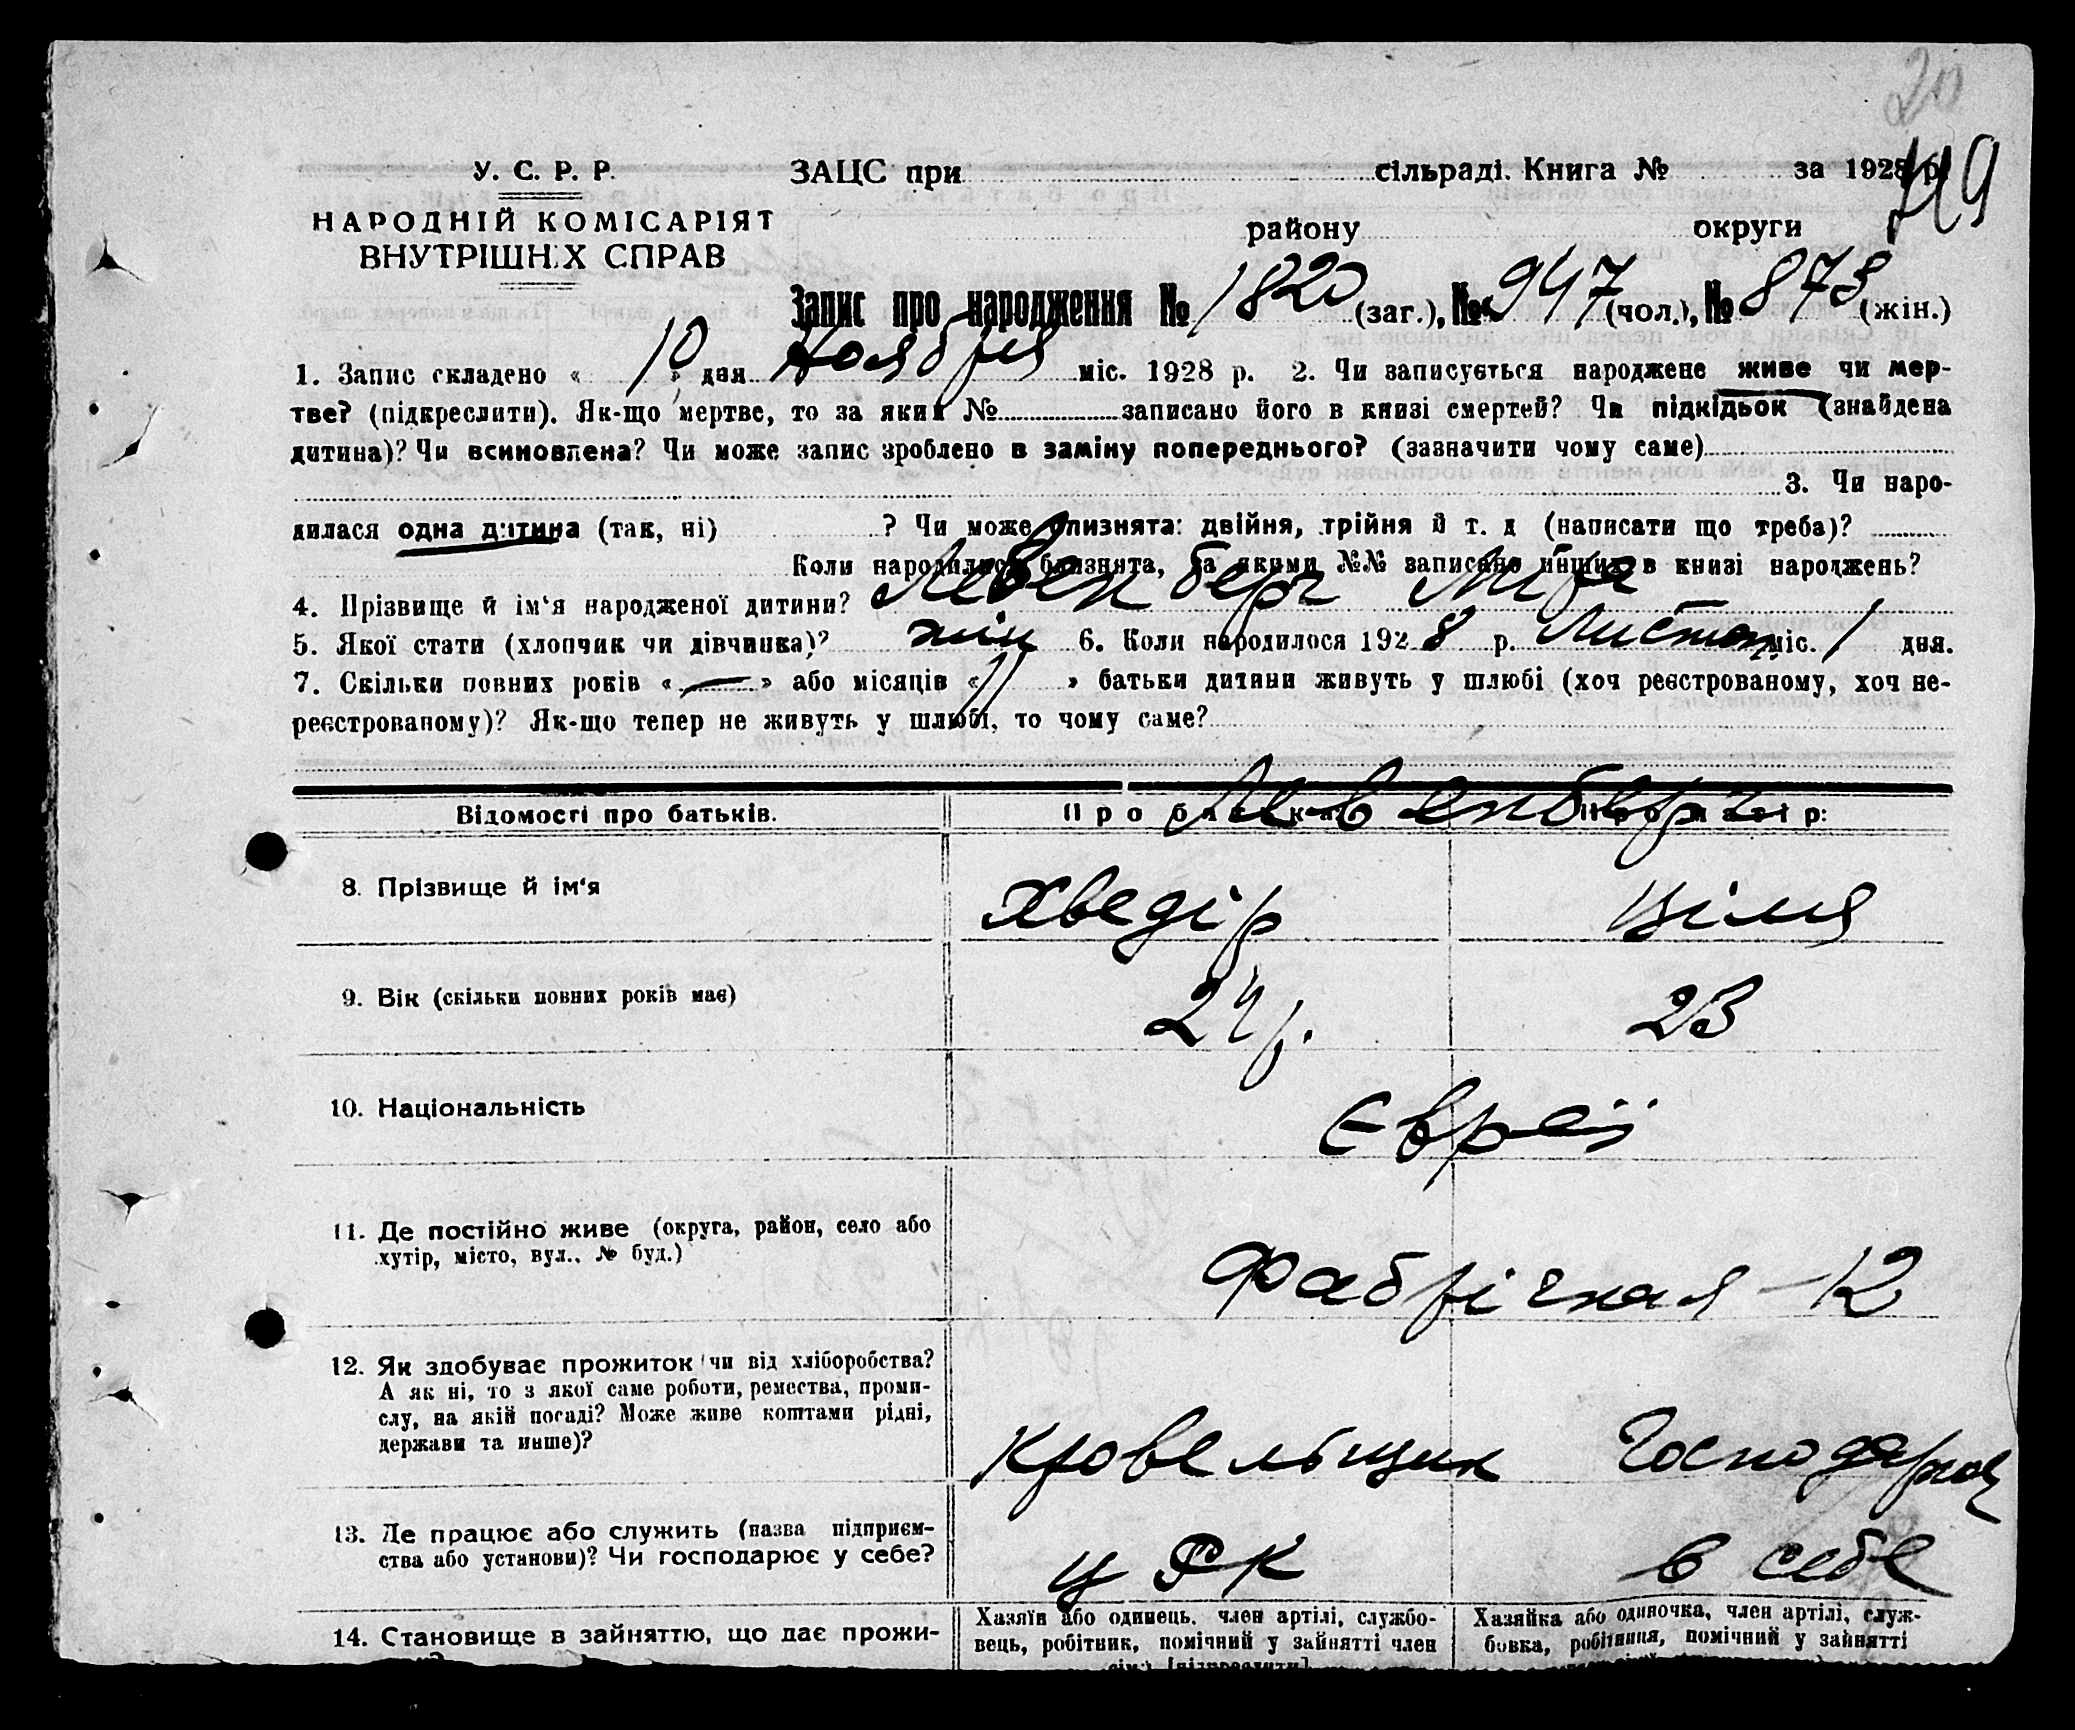 20
У. С. Р. Р.
ЗАЦС при сільраді. Книга № за 1928 р.
119
НАРОДНІЙ КОМІСАРІЯТ
ВНУТРІШНІХ СПРАВ
району округи
Запис про народження № 1820 (заг.), № 947 (чол.), № 873 (жін.)
1. Запис складено « 10 » дня Ноября міс. 1928 р. 2. Чи записується народжене живе чи мер-
тве? (підкреслити). Як-що мертве, то за яким № записано його в книзі смертей? Чи підкідьок (знайдена
дитина)? Чи всиновлена? Чи може запис зроблено в заміну попереднього? (зазначити чому саме)
3. Чи наро-
дилася одна дитина (так, ні) ? Чи може близнята: двійня, трійня й т. д (написати що треба)?
Коли народились близнята, за якими №№ записано инших в книзі народжень?
4. Прізвище й ім'я народженої дитини? Левенберг
5. Якої стати (хлопчик чи дівчинка)? жін 6. Коли народилося 1928 р. Листоп. міс. 1 дня.
7. Скільки повних років « — » або місяців « 11 » батьки дитини живуть у шлюбі (хоч реєстрованому, хоч не-
реєстрованому)? Як-що тепер не живуть у шлюбі, то чому саме?
Відомості про батьків. Про батька: Про матір:
Левенберг
8. Прізвище й ім'я Хведір Ціля
9. Вік (скільки повних років має) 24 р. 23
10. Національність Євреї
11. Де постійно живе (округа, район, село або
хутір, місто, вул., № буд.)
Фабрічная - 12
12. Як здобуває прожиток чи від хліборобства?
А як ні, то з якої саме роботи, ремества, проми-
слу, на якій посаді? Може живе коштами рідні,
держави та инше)?
Кровельщик Господарюэ
13. Де працює або служить (назва підприєм-
ства або установи)? Чи господарює у себе?
ЦРК в себе
14. Становище в зайняттю, що дає прожи-
Хазяїн або одинець, член артілі, службо-
вець, робітник, помічний у зайнятті член
Хазяйка або одиночка, член артілі, служ-
бовка, робітниця, помічний у зайнятті